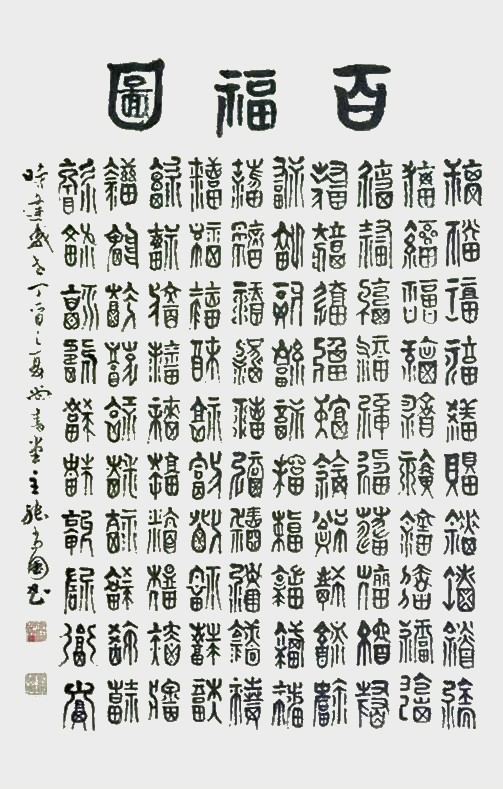 百福圖
福福福福福福福福福福
福福福福福福福福福福
福福福福福福福福福福
福福福福福福福福福福
福福福福福福福福福福
福福福福福福福福福福
福福福福福福福福福福
福福福福福福福福福福
福福福福福福福福福福
福福福福福福福福福福
時盛世丁酉之夏書堂主張國書